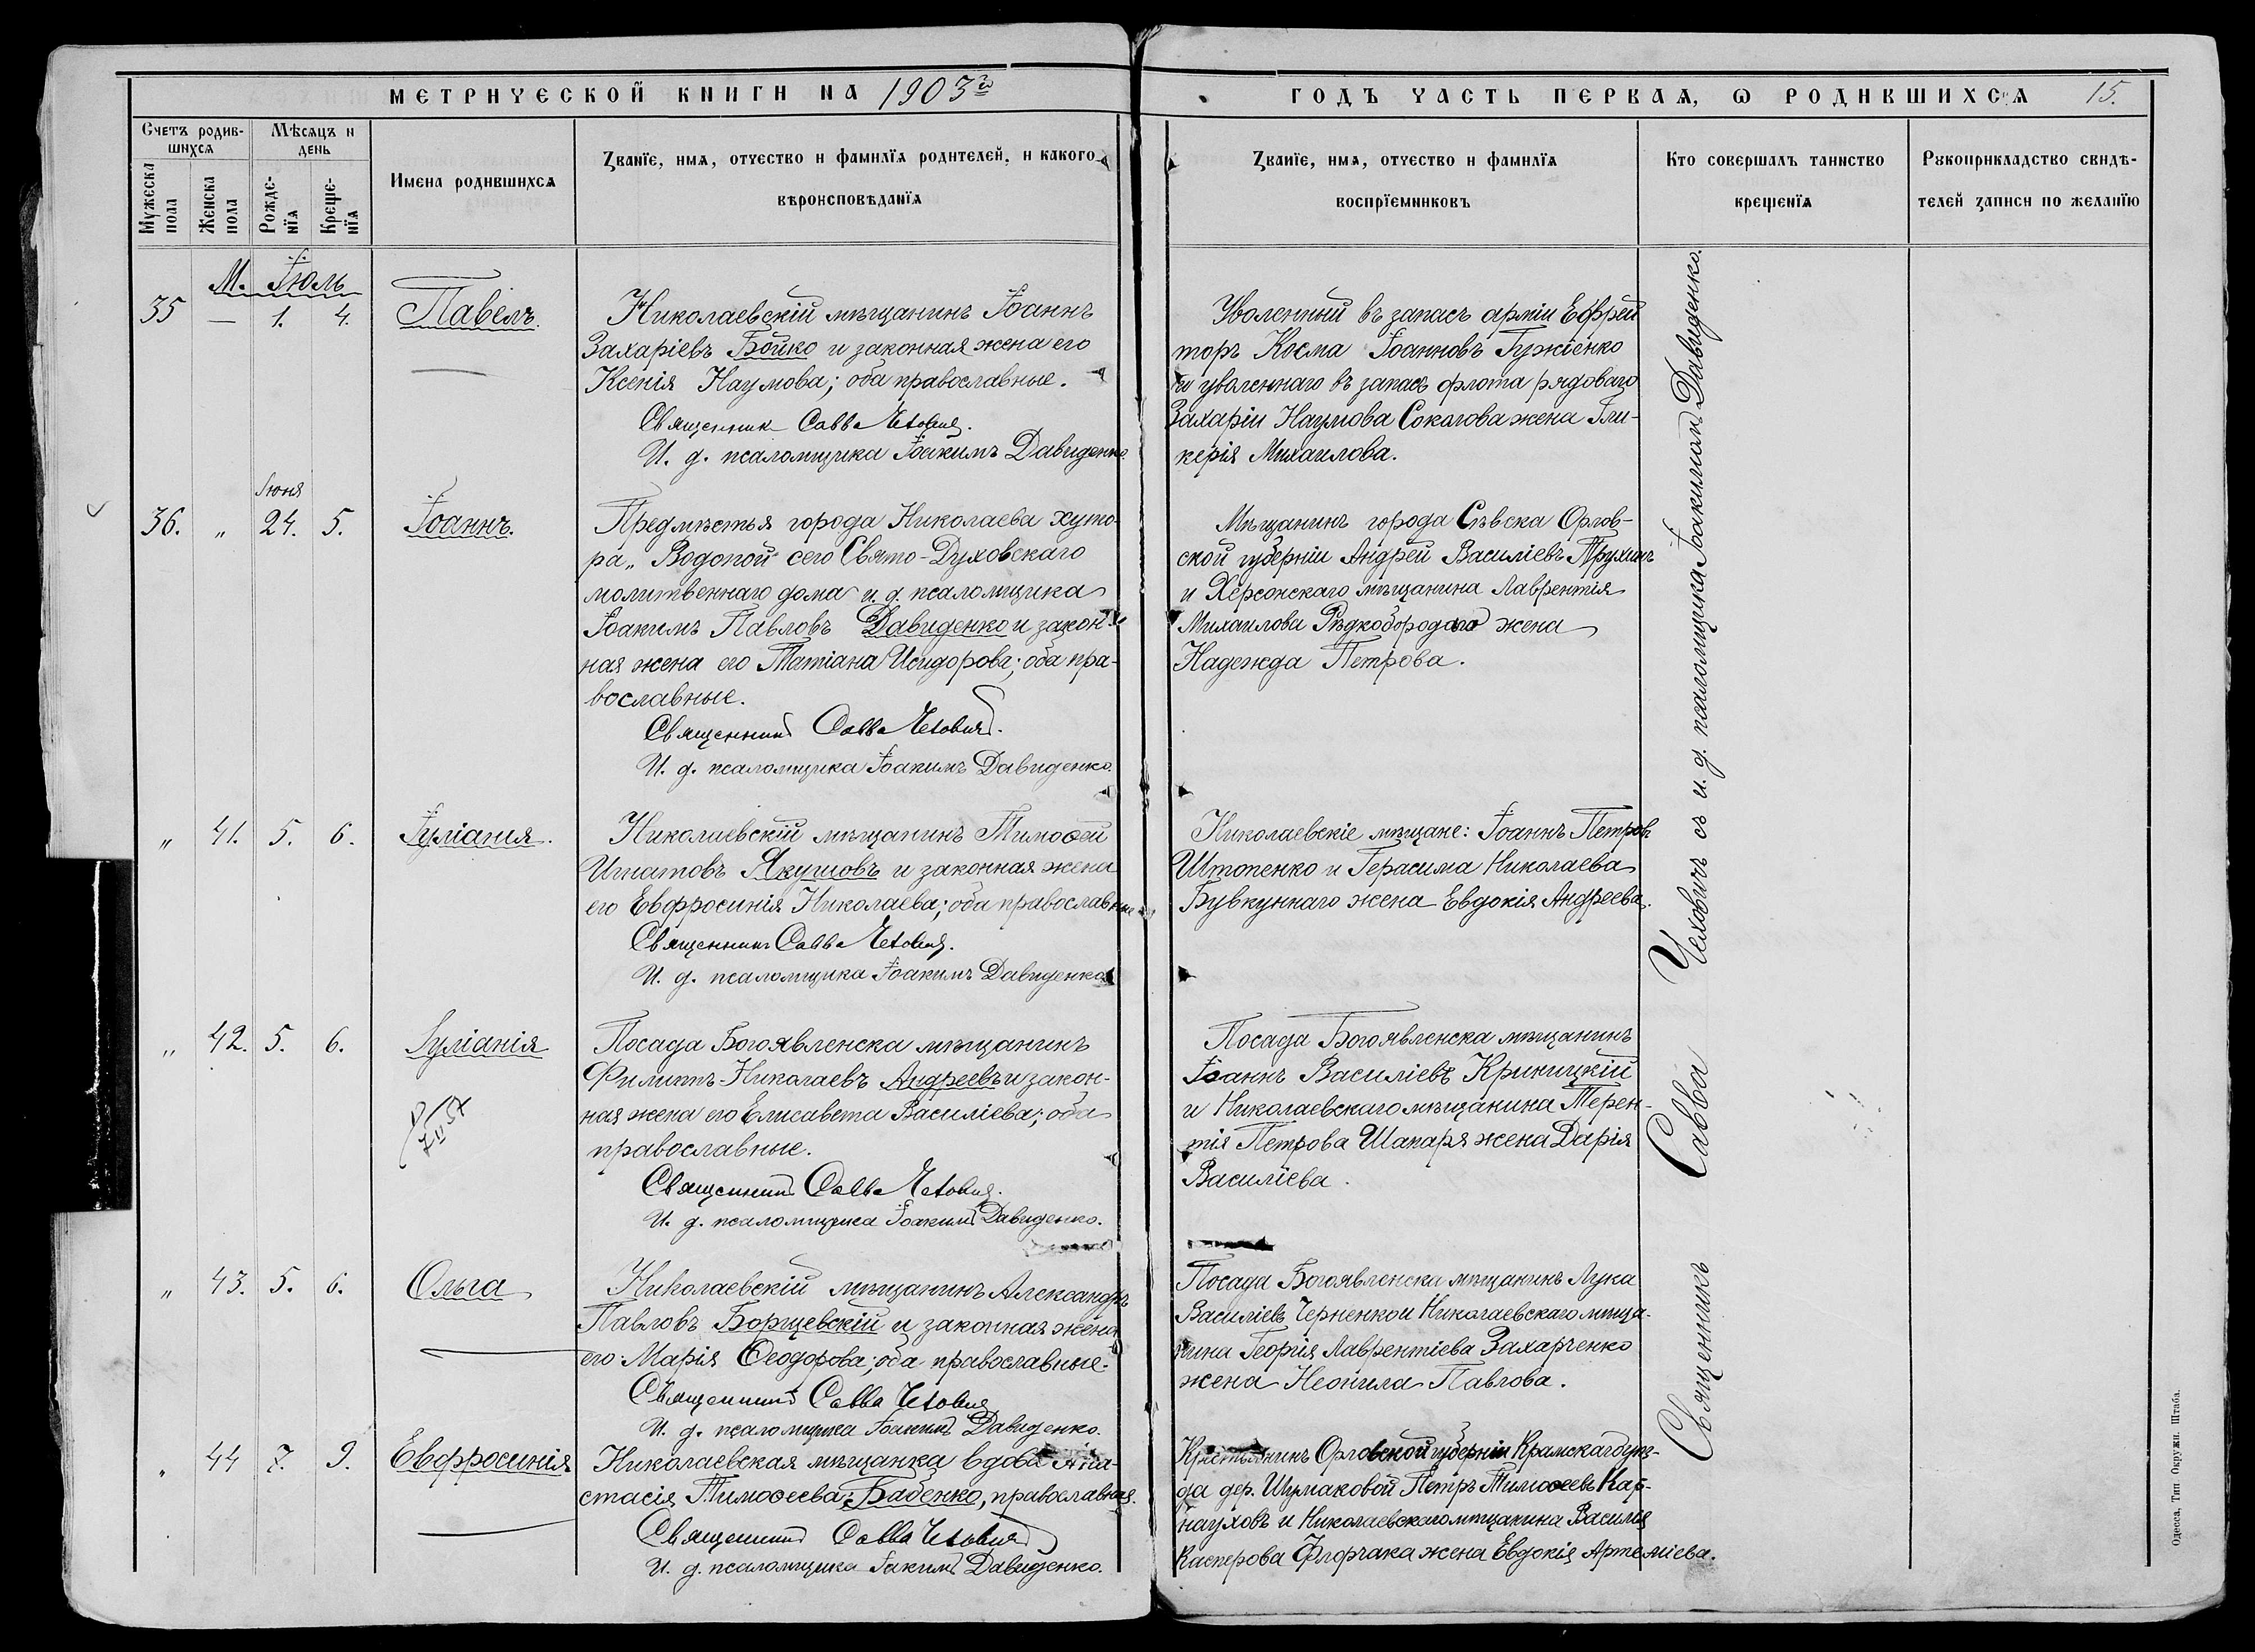 МЕТРИЧЕСКОЙ КНИГИ НА 1903й
ГОДЪ ЧАСТЬ ПЕРВАЯ, Ѡ РОДИВШИХСЯ 15.
Счетъ родив-
шихся
Мѣсяцъ и
день
Мужеска
пола
Женска
пола
Рожде-
нїя
Креще-
нїя
Имена родившихся
Званїе, имя, отчество и фамилїя родителей, и какого
вѣроисповѣданїя
Званїе, имя, отчество и фамилїя
воспрїемниковъ
Кто совершалъ таинство
крещенїя
Рукоприкладство свидѣ-
телей записи по желанїю
М. Іюль
35 — 1. 4. Павелъ.
Николаевскій мѣщанинъ Іоаннъ
Захаріевъ Бойко и законная жена его
Ксенія Наумова; оба православные.
Священник Савва Чеховичъ.
И. д. псаломщика Іоакимъ Давиденко
Уволенный въ запасъ арміи Ефрей
торъ Косма Іоанновъ Гужіенко
и уволеннаго въ запасъ флота рядоваго
Захаріи Наумова Соколова жена Гли-
керія Михаилова.
Іюня
36. „ 24. 5. Іоаннъ.
Предмѣстья города Николаева хуто-
ра „Водопой" сего Свято-Духовскаго
молитвеннаго дома и. д. псаломщика
Іоакимъ Павловъ Давиденко и закон-
ная жена его Татіана Исидорова; оба пра-
вославные.
Священникъ Савва Чеховичъ.
И. д. псаломщика Іоакимъ Давиденко.
Мѣщанинъ города Сѣвска Орлов-
ской губерніи Андрей Василіевъ Трухинъ
и Херсонскаго мѣщанина Лаврентія
Михаилова Рѣдкобородаго жена
Надежда Петрова.
„ 41. 5. 6. Іуліанія.
Николаевскій мѣщанинъ Тимоѳей
Игнатовъ Якушовъ и законная жена
его Евфросинія Николаева; оба православные
Священникъ Савва Чеховичъ.
И. д. псаломщика Іоакимъ Давиденко
Николаевскіе мѣщане: Іоаннъ Петровъ
Штопенко и Герасима Николаева
Бувкуннаго жена Евдокія Андреева.
„ 42. 5. 6. Іуліанія
Посада Богоявленска мѣщанинъ
Филиппъ Николаевъ Андреевъ и закон-
ная жена его Елисавета Василіева; оба
православные.
Священникъ Савва Чеховичъ.
И. д. псаломщика Іоакимъ Давиденко.
Посада Богоявленска мѣщанинъ
Іоаннъ Василіевъ Криницкій
и Николаевскаго мѣщанина Терен-
тія Петрова Шапаря жена Дарія
Василіева.
„ 43. 5. 6. Ольга
Николаевскій мѣщанинъ Александръ
Павловъ Борщевскій и законная жена
его Марія Ѳеодорова; оба православные.
Священникъ Савва Чеховичъ
И. д. псаломщика Іоакимъ Давиденко.
Посада Богоявленска мѣщанинъ Лука
Василіевъ Черненко и Николаевскаго мѣща-
нина Георгія Лаврентіева Захарченко
жена Неонила Павлова.
„ 44 7. 9. Евфросинія
Николаевская мѣщанка вдова Ана-
стасія Тимоѳеева Бабенко, православная.
Священникъ Савва Чеховичъ
И. д. псаломщика Іакимъ Давиденко.
Крестьянинъ Орловской губерніи Крамскаго уѣз-
да дер. Шумаковой Петръ Тимоѳеевъ Кар-
науховъ и Николаевскаго мѣщанина Василія
Касперова Флорчака жена Евдокія Артеміева.
Священникъ Савва Чеховичъ съ и. д. псаломщика Іоакимомъ Давиденко.
Одесса, Тип. Окружн. Штаба.